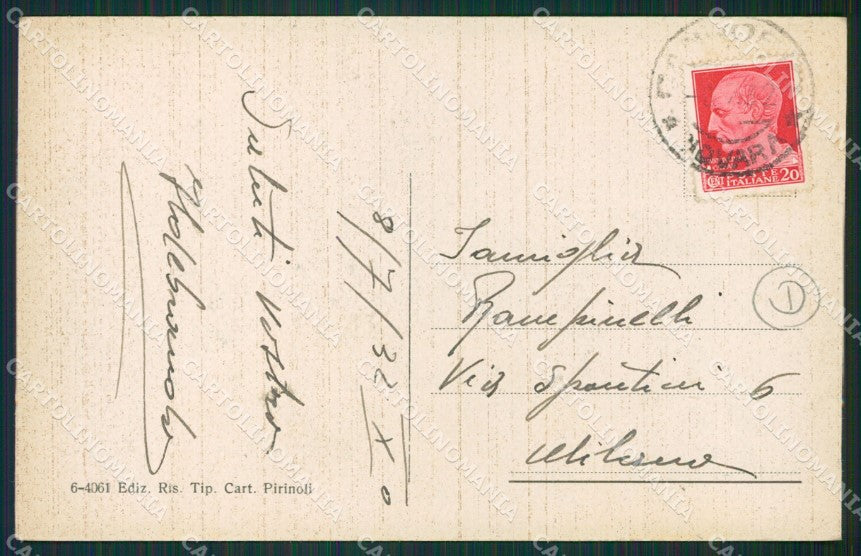 Saluti vostro
8/7/32 X°
Famiglia
Rampinelli
Via Spontini 6
Milano
NOVARA
POSTE
ITALIANE
CENT 20
1
6-4061 Ediz. Ris. Tip. Cart. Pirinoli
CARTOLINOMANIA